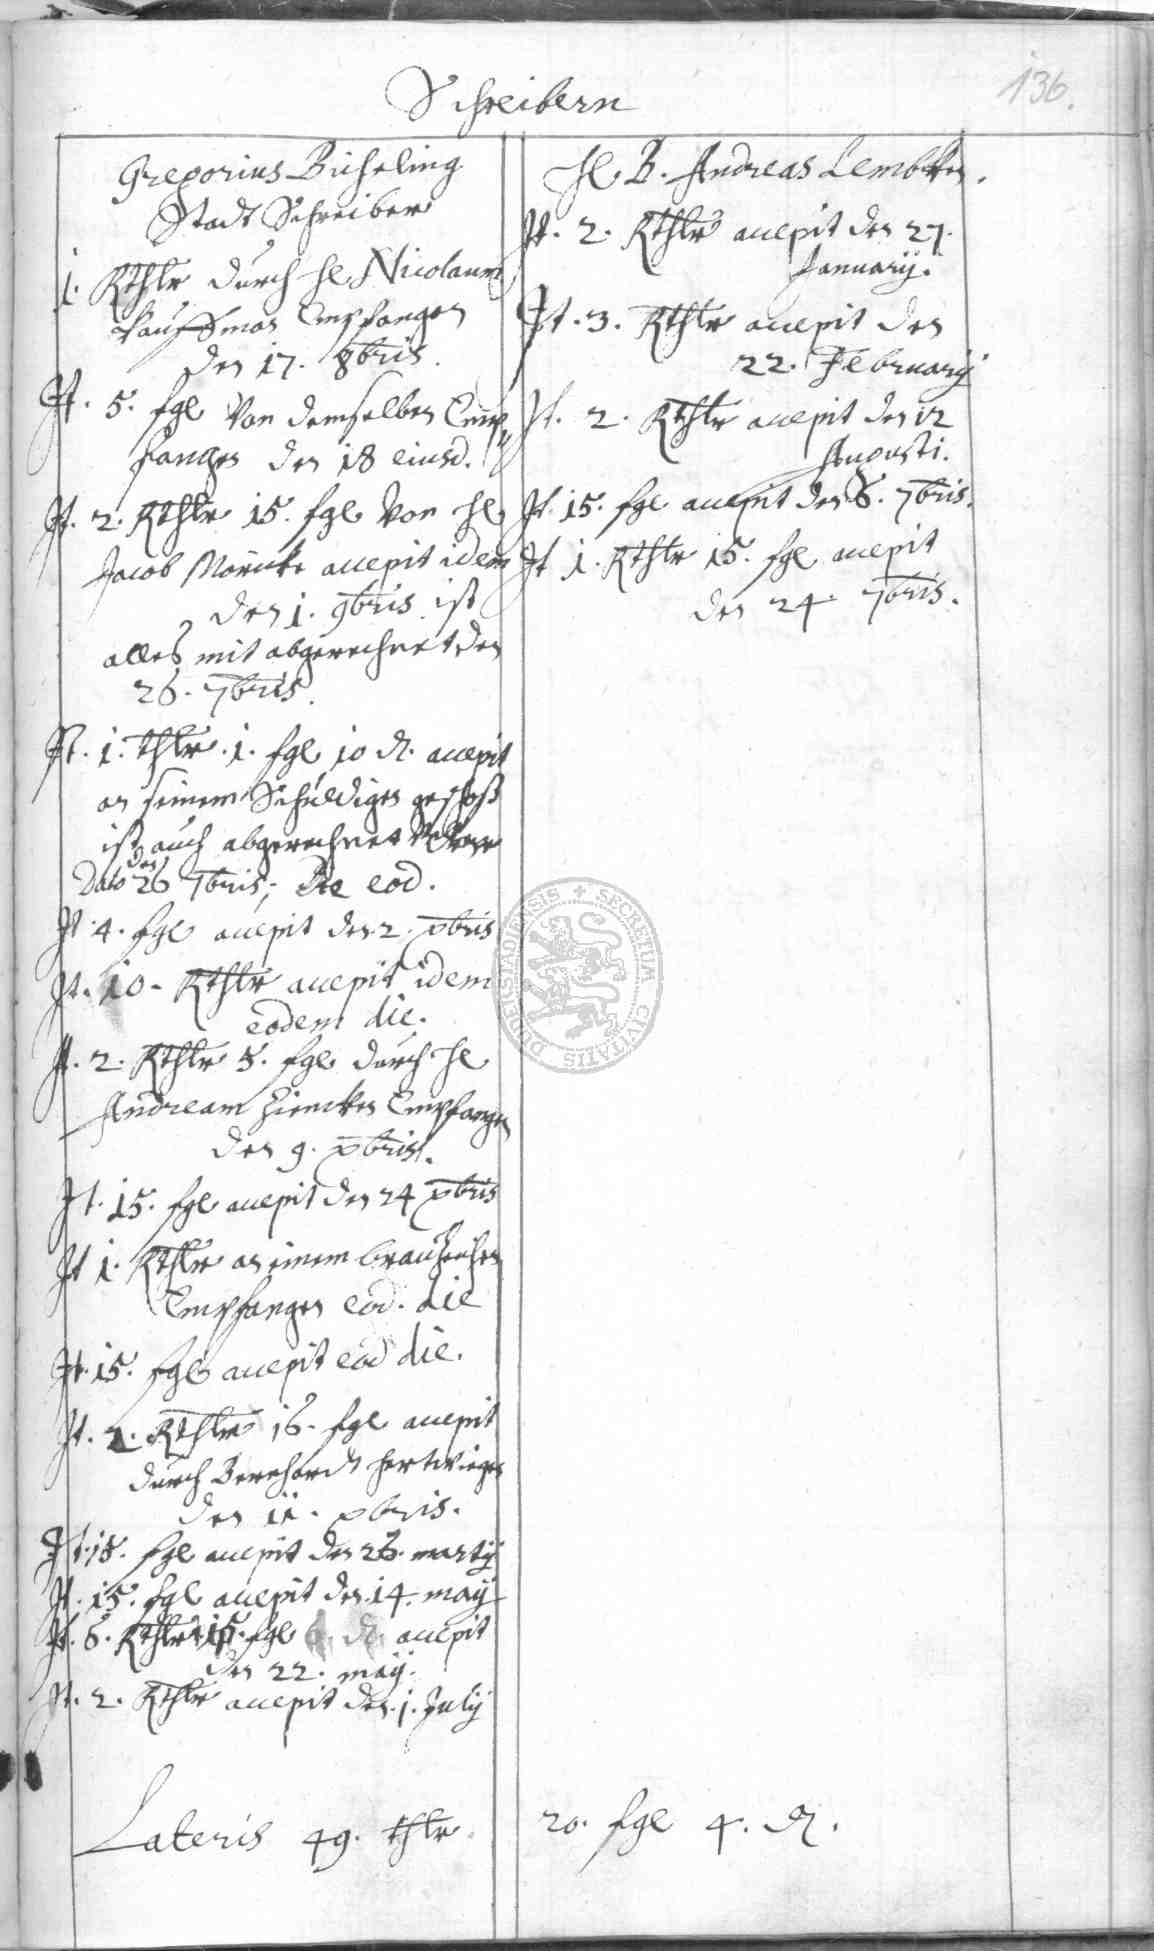 136.
Schreibern
Gregorius Bicheling
Stadt Schreiber
1. Rthlr durch H. Nicolaum
Kauffman Empfangen
den 17. 8bris.
It. 5. fgl Von demselben Emp„
fangen den 18 eiusd.
It. 2. Rthlr 15. fgl Von H.
Jacob accepit idem
den 1. 9bris ist
alles mit abgerechnet den
26. 7bris.
It. 1. thlr. 1. fgl 10 d. accepit
an seinem Schuldigen geschoß
ist auch abgerechnet
Dato den 26 7bris; Die eod.
It. 4. fgl accepit den 2. xbris
It. 10. Rthlr accepit idem
eodem die.
It. 2. Rthlr 5. fgl durch H.
Andream Empfangen
den 9. xbris.
It. 15. fgl accepit den 24 xbris
It 1. Rthlr an einem
Empfangen eod. die
It. 15. fgl accepit eod die.
It. 2. Rthlr 16. fgl accepit
durch Bernhardt Hertwigen
den 11. xbris.
It. 15. fgl accepit den 26. martij
It. 15. fgl accepit den 14. maij
It. 6. Rthlr 15. fgl 6. d. accepit
den 22. maij.
It. 2. Rthlr accepit den 1. Julij
H. B. Andreas Lembken.
It. 2. Rthlr accepit den 27.
Januarij.
It. 3. Rthlr accepit den
22. Februarij
It. 2. Rthlr accepit den 12
Augusti.
It. 15. fgl accepit den 6. 7bris.
It 1. Rthlr 15. fgl accepit
den 24. 7bris.
SECRETUM CIVITATIS DUDERSTADIENSIS
Lateris 49. thlr. 20. fgl 4. d.